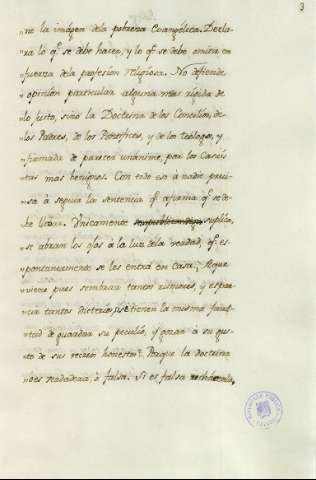 3
ne la imágen de la pobreza Evangélica. Decla-
ra lo q.e se debe hacer, y lo q.e se debe omitir en
fuerza de la profesión religiosa. No defiende
opinión particular alguna mas rígida de
lo justo, sino la Doctrina de los Concilios, de
los Padres, de los Pontífices, y de los teólogos, y
firmada de parecer unánime, por los Casuis-
tas mas benignos. Con todo eso á nadie preci-
sa á seguir la sentencia q.e afirma q.e se de-
be Unicamente suplíca,
se abran los ojos á la luz de la verdad, q.e es-
pontaneamente se les entra en casa. A que
viene pues sembrar tantos rumores, y espar-
cir tantos dicterios, si tienen la misma facul-
tad de guardar su peculio, y gozan á su gus-
to de sus recreos honestos? Porque la doctrina
ó es verdadera, ó falsa. Si es falsa